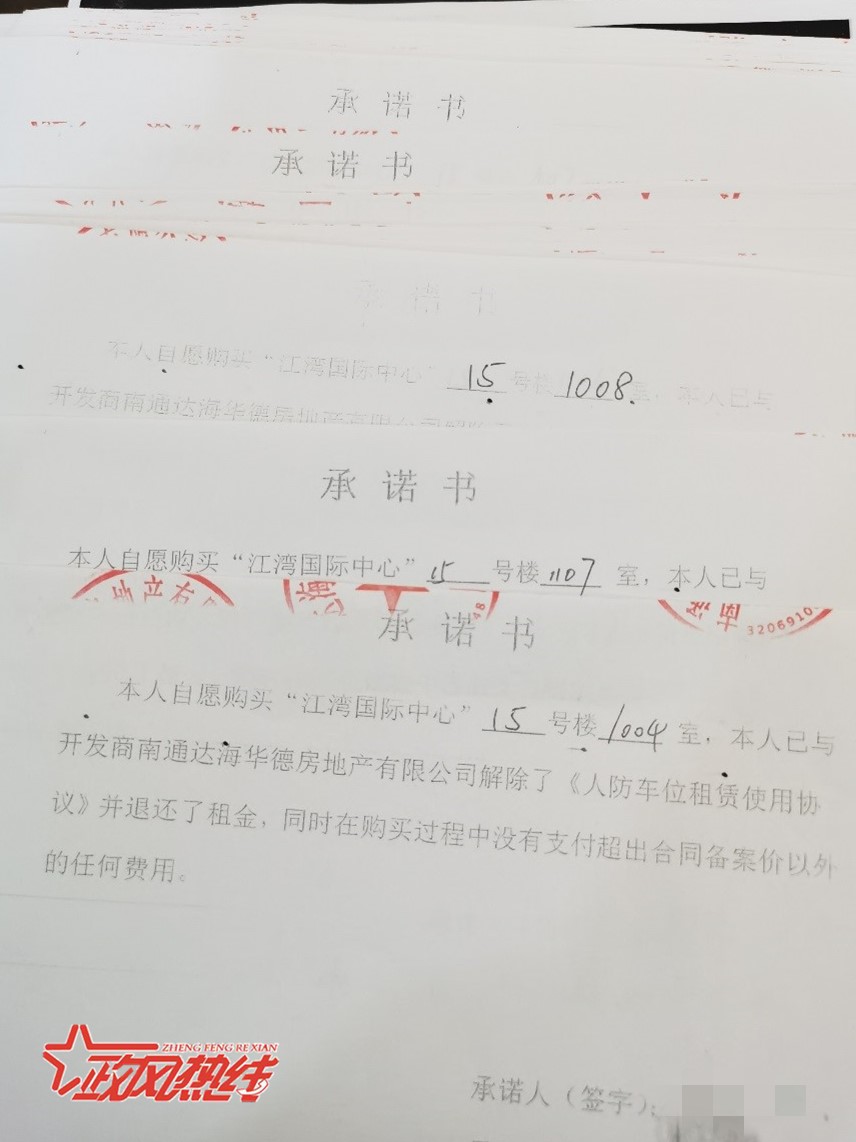 承 诺 书
承 诺 书
承 诺 书
本人自愿购买“江湾国际中心” 15 号楼 1008 室，本人已与
开发商南通达海华德房地产有限公司解除
承 诺 书
本人自愿购买“江湾国际中心” 15 号楼 1107 室，本人已与
地产有
3206910
承 诺 书
本人自愿购买“江湾国际中心” 15 号楼 1004 室，本人已与
开发商南通达海华德房地产有限公司解除了《人防车位租赁使用协
议》并退还了租金，同时在购买过程中没有支付超出合同备案价以外
的任何费用。
承诺人（签字）：
ZHENG FENG RE XIAN
政风热线